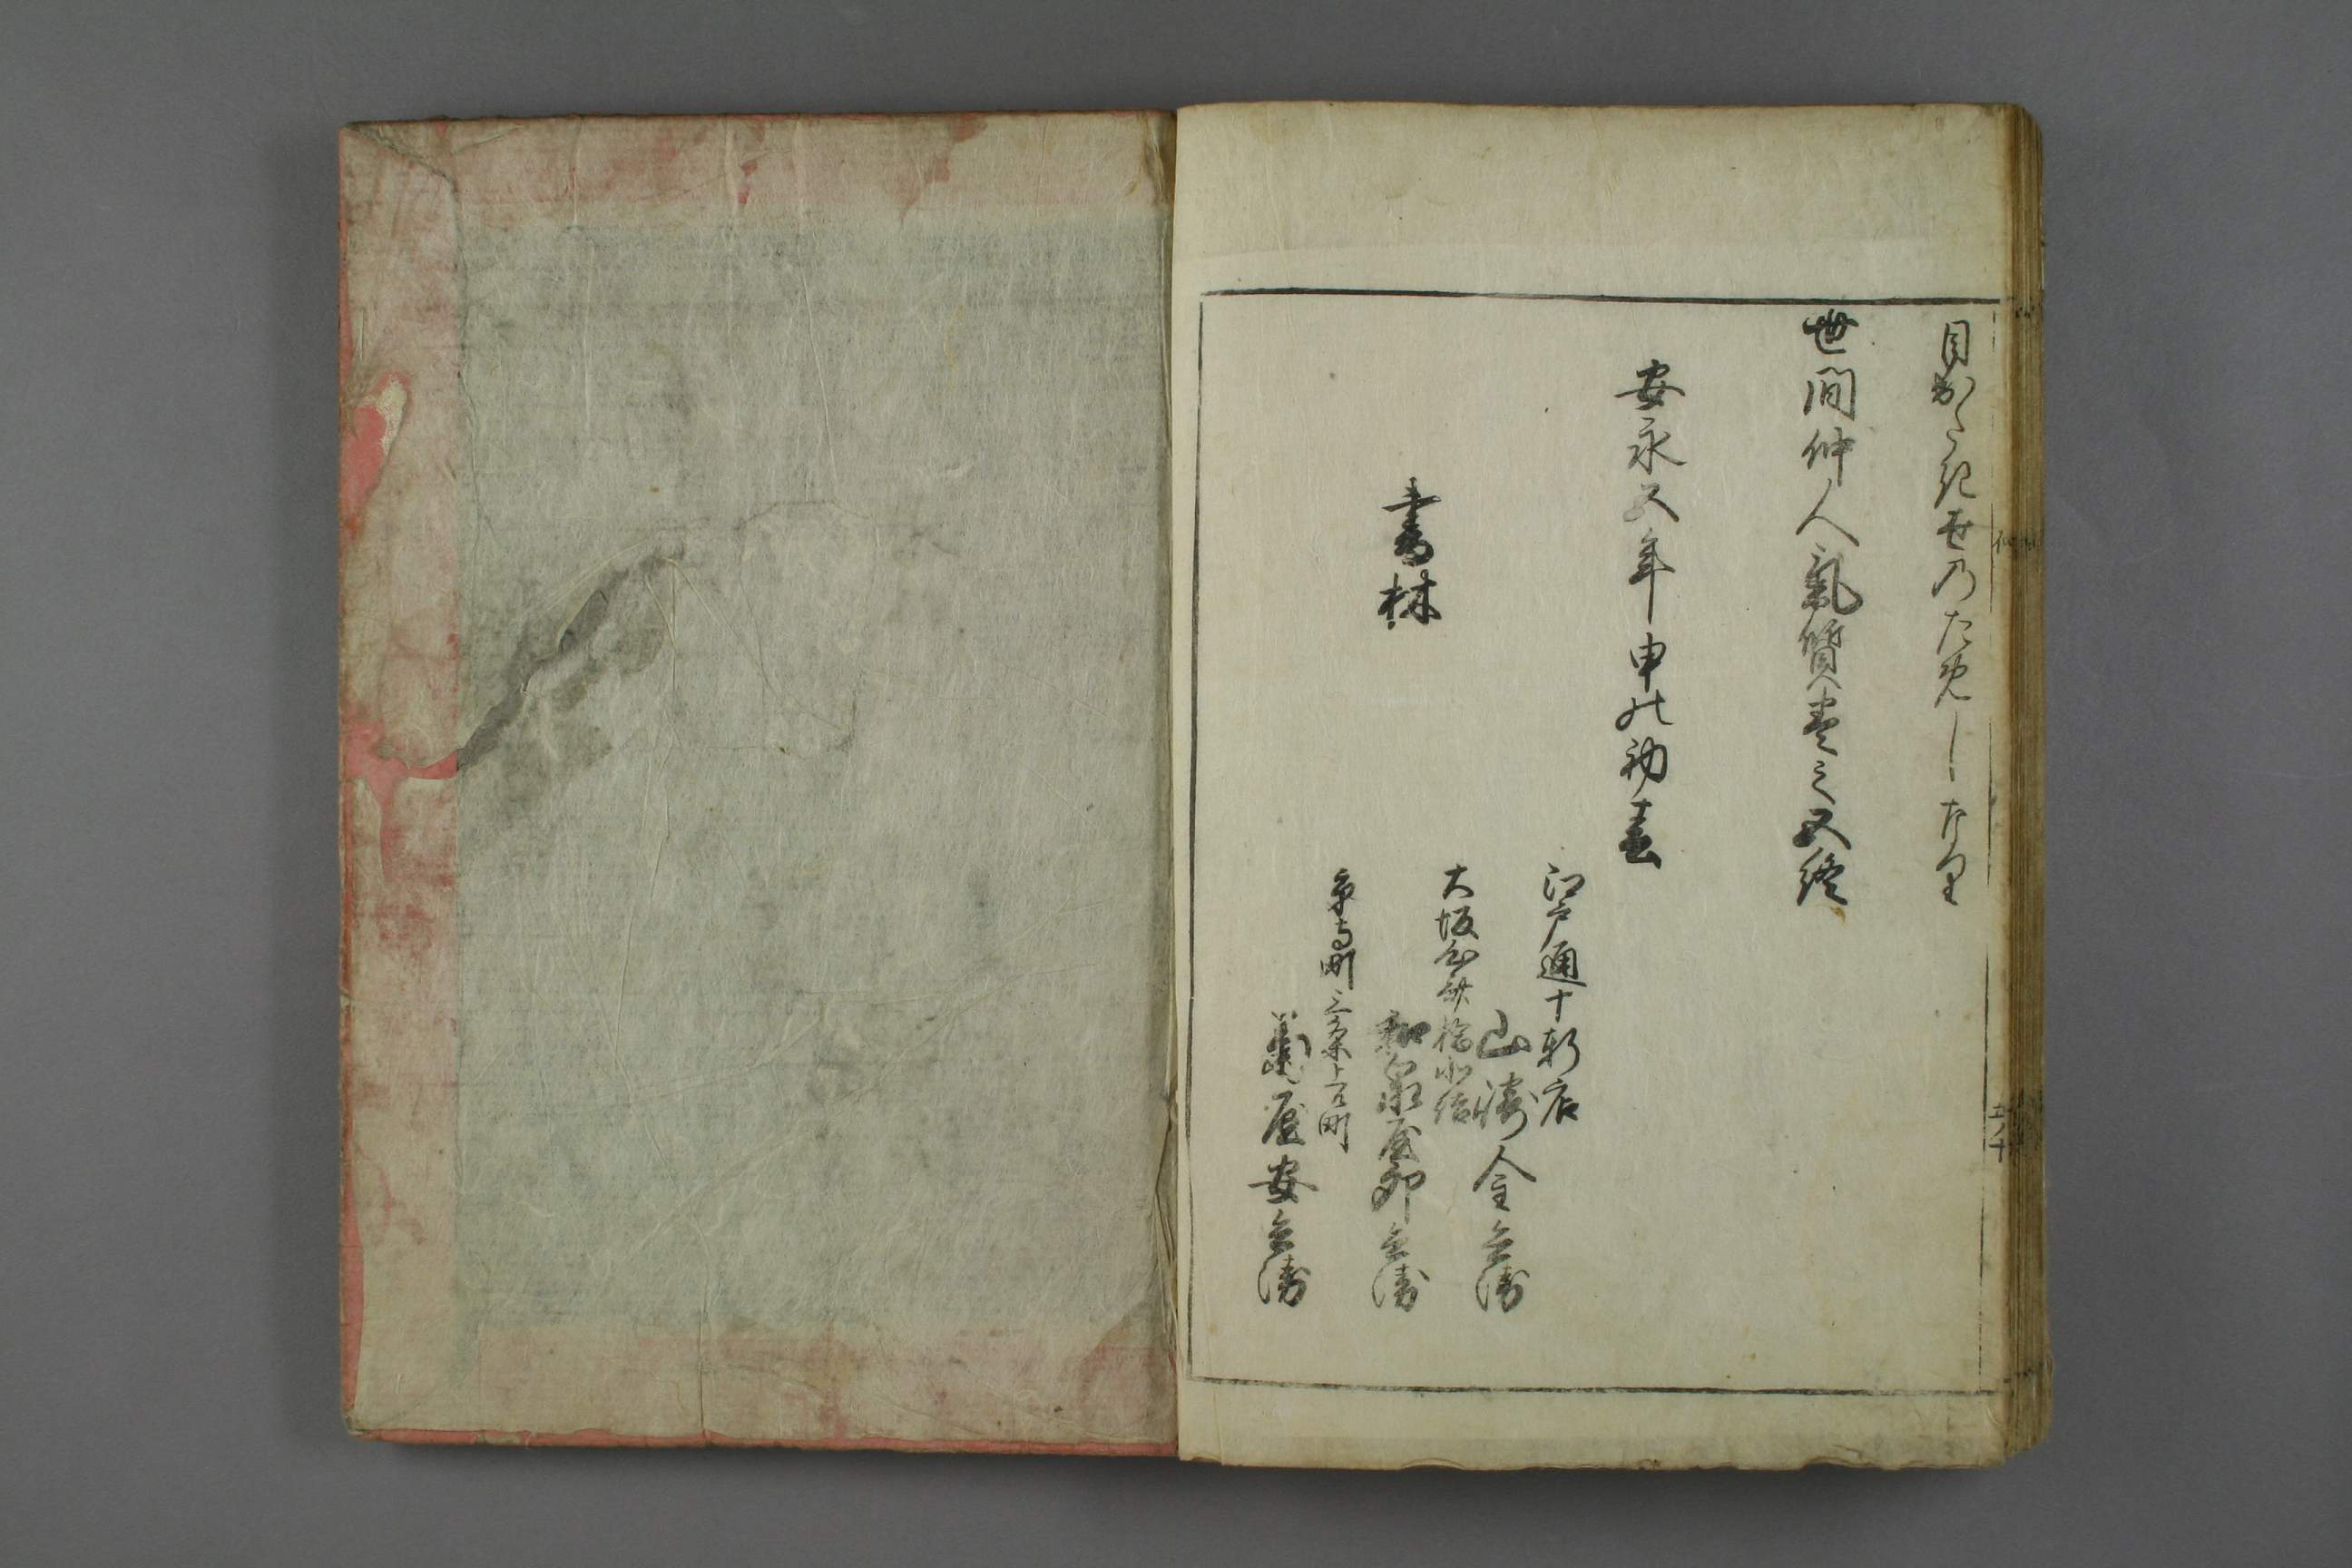 目出たき世のためしなり
世間仲人氣質巻之五終
安永五年申の初春
書林
江戸通十軒店
山﨑金兵衛
大坂心斎橋北詰
和泉屋卯兵衛
京寺町三条上ル町
菊屋安兵衛
五ノ十